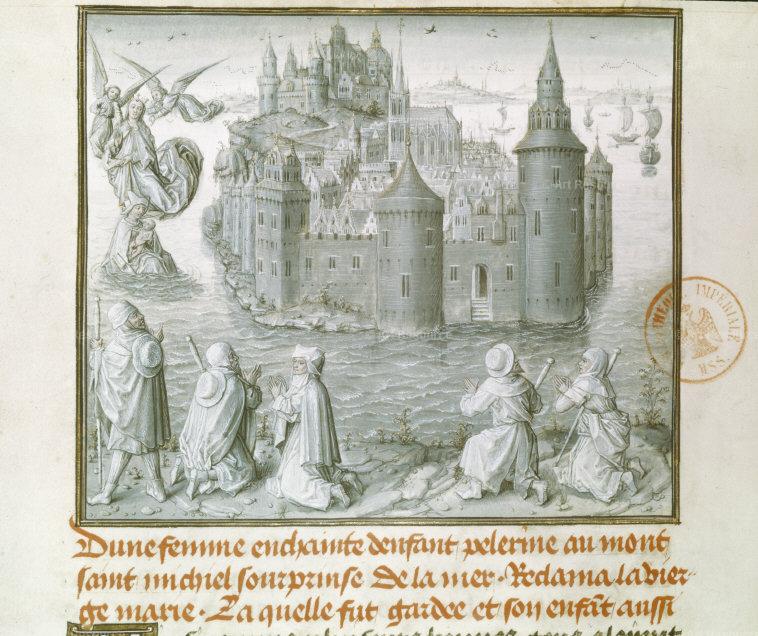 Dune femme enchainte denfant pelerine au mont
saint michiel sourprinse de la mer. Reclama la vier-
ge marie. La quelle fut gardee et son enfãt aussi
IMPERIALE
MSS.